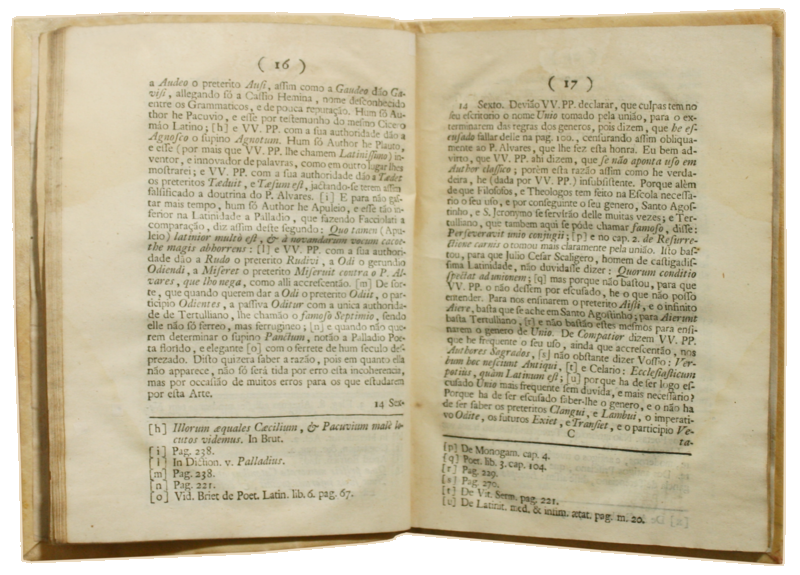 ( 16 )
a Audeo o preterito Ausi, assim como a Gaudeo dão Ga-
visi, allegando só a Cassio Hemina, nome desconhecido
entre os Grammaticos, e de pouca reputação. Hum só Au-
thor he Pacuvio, e esse por testemunho do mesmo Cice-o
mão Latino; [h] e VV. PP. com a sua authoridade dão a
Agnosco o supino Agnotum. Hum só Author he Plauto,
e esse (por mais que VV. PP. lhe chamem Latinissimo) in-
ventor, e innovador de palavras, como em outro lugar lhes
mostrarei; e VV. PP. com a sua authoridade dão a Tædet
os preteritos Tæduit, e Tæsum est, jactando-se terem assim
falsificado a doutrina do P. Alvares. [i] E para não gas-
tar mais tempo, hum só Author he Apuleio, e esse tão in-
ferior na Latinidade a Palladio, que fazendo Facciolati a
comparação, diz assim deste segundo: Quo tamen (Apu-
leio) latinior multò est, & à novandarum vocum cacoe-
the magis abhorrens: [l] e VV. PP. com a sua authori-
dade dão a Rudo o preterito Rudivi, a Odi o gerundio
Odiendi, a Miseret o preterito Miseruit contra o P. Al-
vares, que lho nega, como alli accrescentão. [m] De sor-
te, que quando querem dar a Odi o preterito Odiit, o par-
ticipio Odientes, a passiva Oditur com a unica authorida-
de de Tertulliano, lhe chamão o famoso Septimio, sendo
elle não só ferreo, mas ferrugineo; [n] e quando não que-
rem determinar o supino Panctum, notão a Palladio Poe-
ta florido, e elegante [o] com o ferrete de hum seculo des-
prezado. Disto quizera saber a razão, pois em quanto ella
não apparece, não só será tida por erro esta incoherencia,
mas por occasião de muitos erros para os que estudarem
por esta Arte.
14 Sex-
[h] Illorum æquales Cæcilium, & Pacuvium malè lo-
cutos videmus. In Brut.
[i] Pag. 238.
[l] In Diction. v. Palladius.
[m] Pag. 238.
[n] Pag. 221.
[o] Vid. Briet de Poet. Latin. lib. 6. pag. 67.
( 17 )
14 Sexto. Devião VV. PP. declarar, que culpas tem no
seu escritorio o nome Unio tomado pela união, para o ex-
terminarem das regras dos generos, pois dizem, que he es-
cusado fallar delle na pag. 100., censurando assim obliqua-
mente ao P. Alvares, que lhe fez esta honra. Eu bem ad-
virto, que VV. PP. ahi dizem, que se não aponta uso em
Author classico; porém esta razão assim como he verda-
deira, he (dada por VV. PP.) insubsistente. Porque além
de que Filosofos, e Theologos tem feito na Escola necessa-
rio o seu uso, e por conseguinte o seu genero, Santo Agos-
tinho, e S. Jeronymo se servirão delle muitas vezes; e Ter-
tulliano, que tambem aqui se póde chamar famoso, disse:
Perseveravit unio conjugii; [p] e no cap. 2. de Resurre-
ctione carnis o tomou mais claramente pela união. Isto bas-
tou, para que Julio Cesar Scaligero, homem de castigadis-
sima Latinidade, não duvidasse dizer: Quorum conditio
spectat ad unionem; [q] mas porque não bastou, para que
VV. PP. o não dessem por escusado, he o que não posso
entender. Para nos ensinarem o preterito Aisti, e o infinito
Aiere, basta que se ache em Santo Agostinho; para Aierunt
basta Tertulliano, [r] e não bastão estes mesmos para ensi-
narem o genero de Unio. De Compatior dizem VV. PP.
que he frequente o seu uso, ainda que accrescentão, nos
Authores Sagrados, [s] não obstante dizer Vossio: Ver-
bum hoc nesciunt Antiqui, [t] e Celario: Ecclesiasticum
potius, quàm Latinum est; [u] porque ha de ser logo es-
cusado Unio mais frequente sem duvida, e mais necessario?
Porque ha de ser escusado saber-lhe o genero, e o não ha
de ser saber os preteritos Clangui, e Lambui, o imperati-
vo Odite, os futuros Exiet, e Transiet, e o participio Ve-
C
ta-
[p] De Monogam. cap. 4.
[q] Poet. lib. 3. cap. 104.
[r] Pag. 229.
[s] Pag. 270.
[t] De Vit. Serm. pag. 221.
[u] De Latinit. med. & infim. ætat. pag. m. 20.